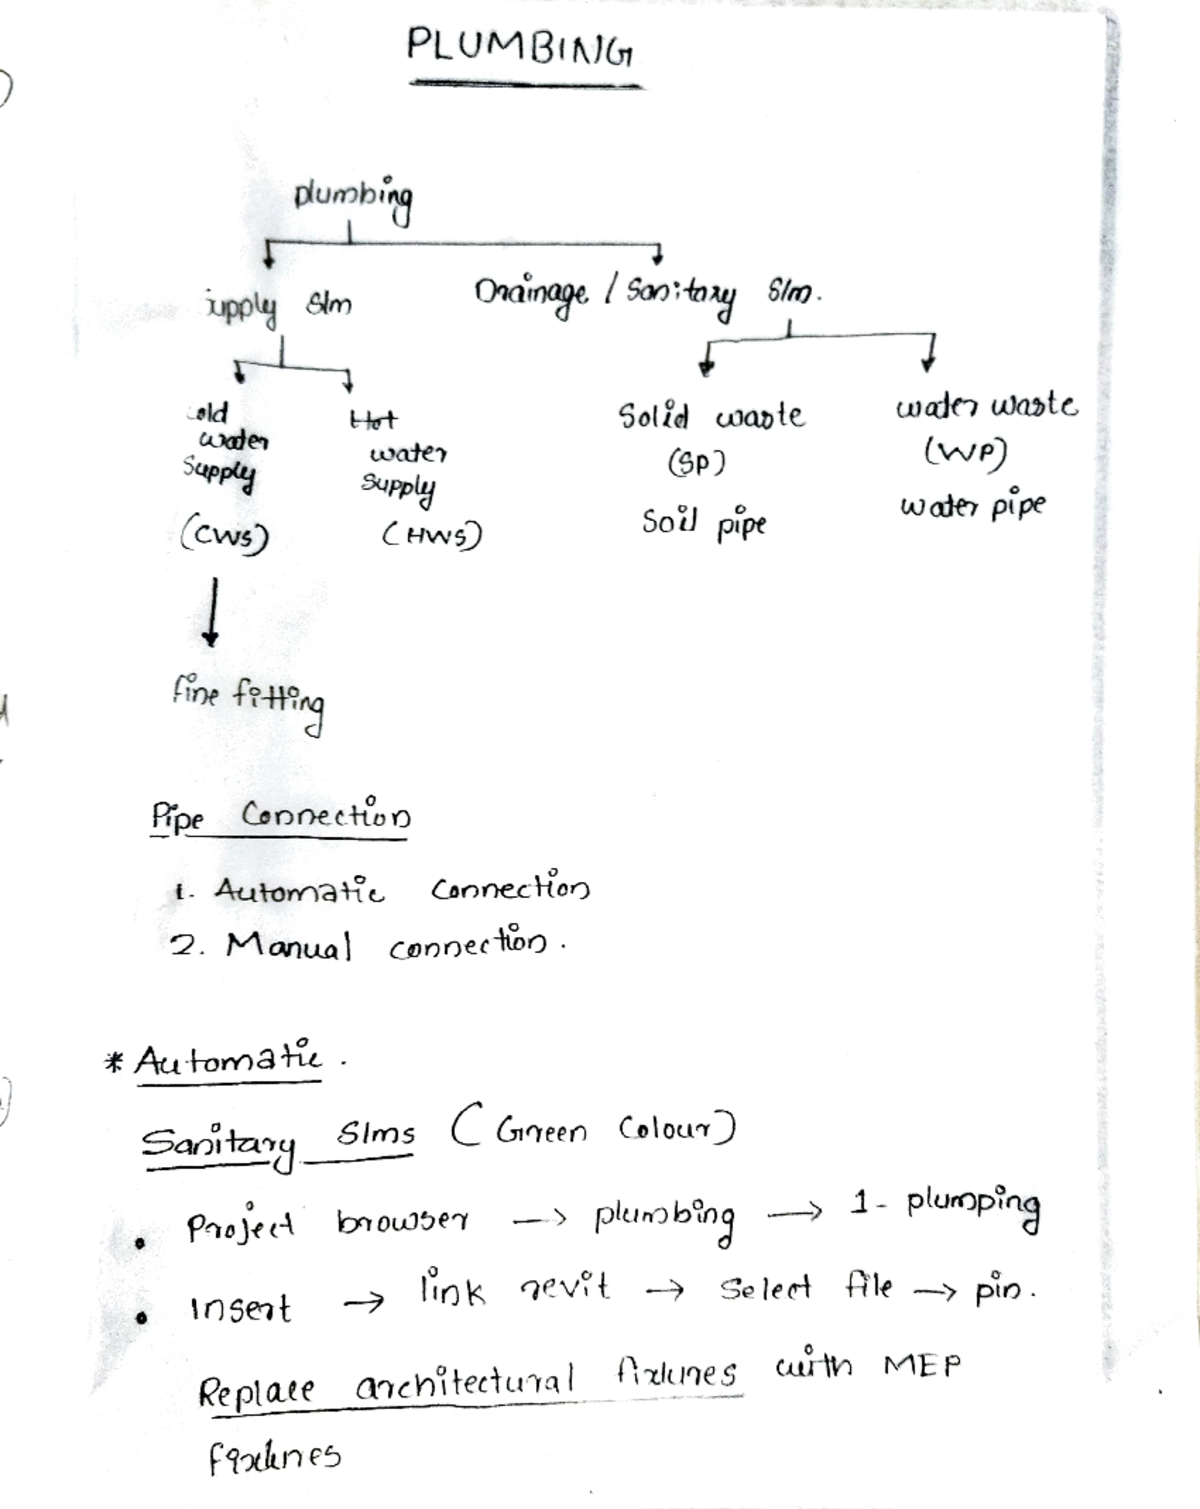 PLUMBING
plumbing
upply S/m
Drainage / Sanitary S/m.
old
water
supply
(CWS)
Hot
water
supply
(HWS)
Solid waste
(SP)
Soil pipe
water waste
(WP)
water pipe
fine fitting
Pipe Connection
1. Automatic connection
2. Manual connection.
* Automatic.
Sanitary S/ms (Green Colour)
• Project browser → plumbing → 1- plumping
• Insert → link revit → Select file → pin.
Replace architectural fixtures with MEP
fixtures